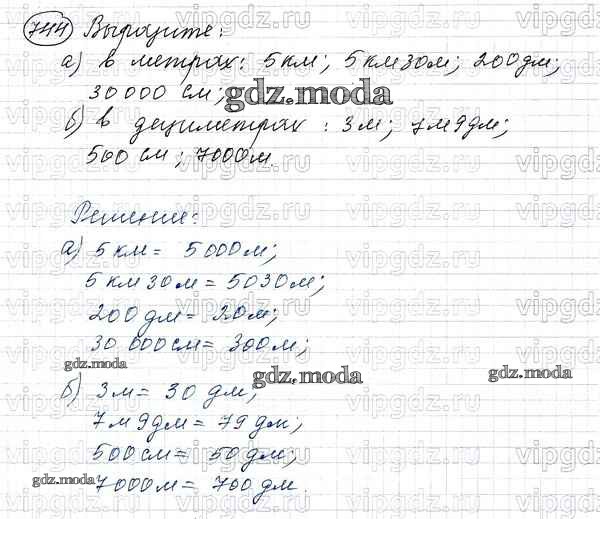 744 Выразите:
а) в метрах: 5 км; 5 км 30 м; 200 дм;
30 000 см;
gdz.moda
б) в дециметрах: 3 м; 7 м 9 дм;
500 см; 7000 м.
Решение:
а) 5 км = 5000 м;
5 км 30 м = 5030 м;
200 дм = 20 м;
30 000 см = 300 м;
gdz.moda
gdz.moda
gdz.moda
б) 3 м = 30 дм;
7 м 9 дм = 79 дм;
500 см = 50 дм;
gdz.moda
7000 м = 700 дм.
vipgdz.ru